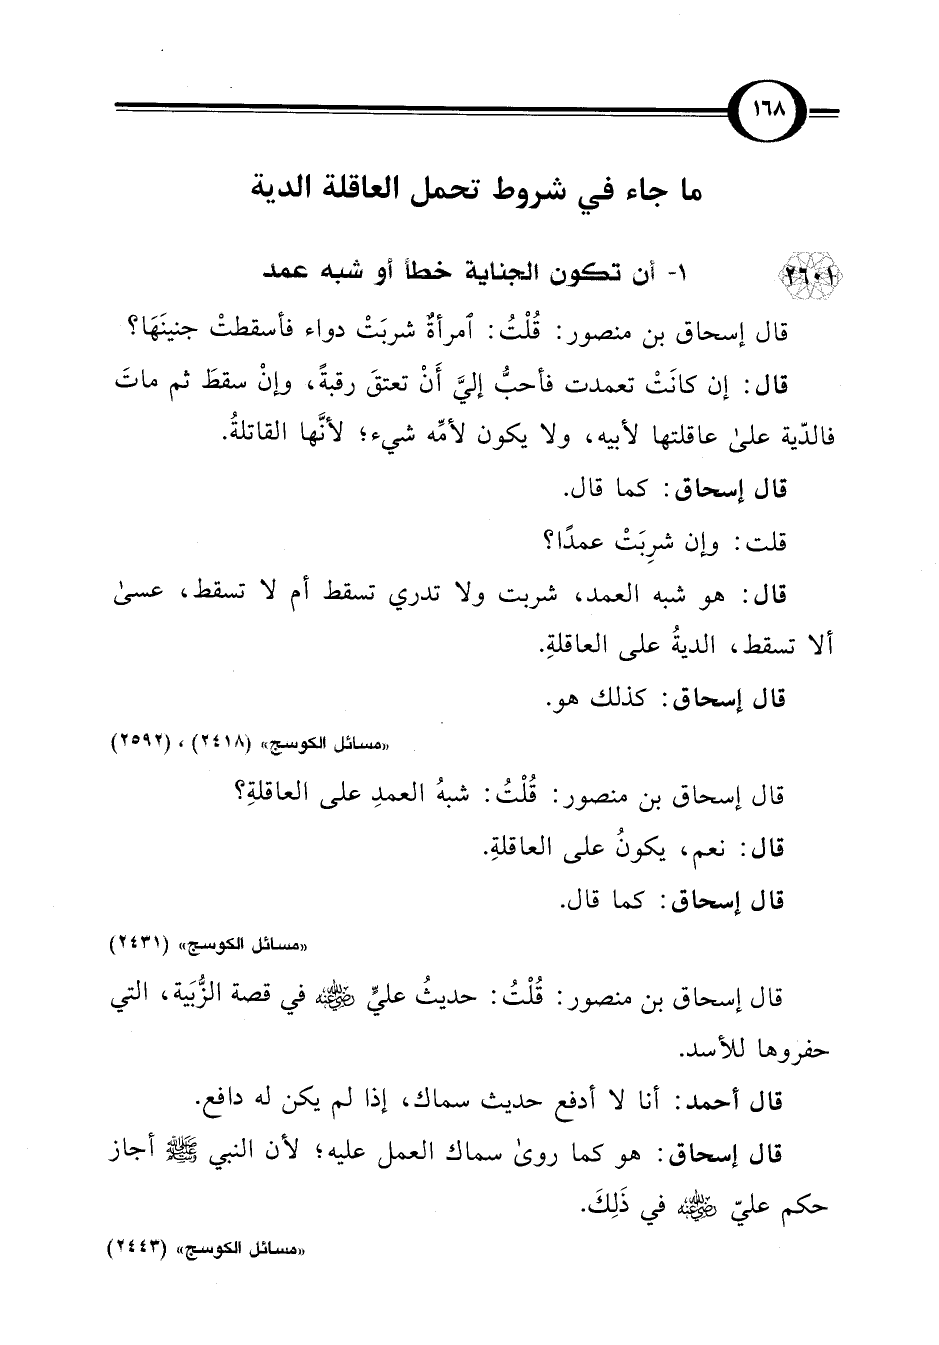 ١٦٨
ما جاء في شروط تحمل العاقلة الدية
٢٦٠١ ١- أن تكون الجناية خطأ أو شبه عمد
قال إسحاق بن منصور: قُلْتُ: ٱمرأةٌ شربَتْ دواء فأسقطتْ جنينَهَا؟
قال: إن كانَتْ تعمدت فأحبُّ إليَّ أَنْ تعتقَ رقبةً، وإنْ سقطَ ثم ماتَ
فالدّية علىٰ عاقلتها لأبيه، ولا يكون لأمِّه شيء؛ لأنَّها القاتلةُ.
قال إسحاق: كما قال.
قلت: وإن شرِبَتْ عمدًا؟
قال: هو شبه العمد، شربت ولا تدري تسقط أم لا تسقط، عسىٰ
ألا تسقط، الديةُ على العاقلةِ.
قال إسحاق: كذلك هو.
«مسائل الكوسج» (٢٤١٨)، (٢٥٩٢)
قال إسحاق بن منصور: قُلْتُ: شبهُ العمدِ على العاقلةِ؟
قال: نعم، يكونُ على العاقلةِ.
قال إسحاق: كما قال.
«مسائل الكوسج» (٢٤٣١)
قال إسحاق بن منصور: قُلْتُ: حديثُ عليٍّ رضي الله عنه في قصة الزُّبَية، التي
حفروها للأسد.
قال أحمد: أنا لا أدفع حديث سماك، إذا لم يكن له دافع.
قال إسحاق: هو كما روىٰ سماك العمل عليه؛ لأن النبي ﷺ أجاز
حكم عليّ رضي الله عنه في ذَلِكَ.
«مسائل الكوسج» (٢٤٤٣)